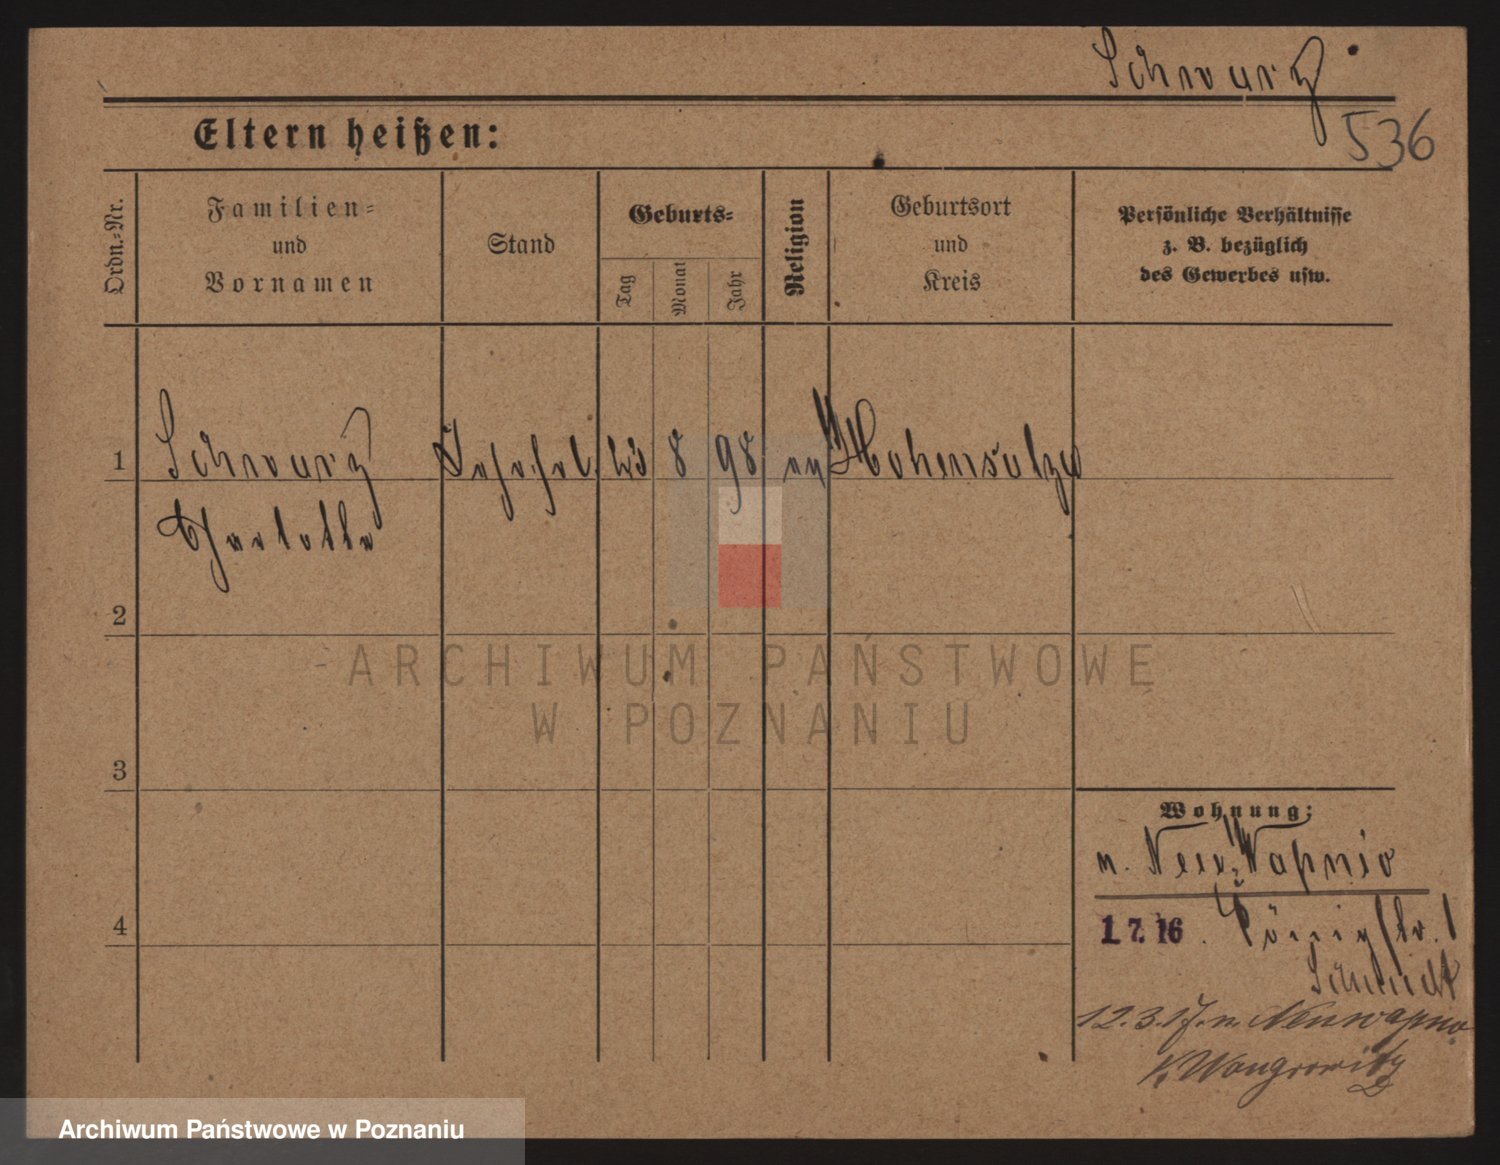 Schwarz
536
Eltern heißen:
Ordn.-Nr.
Familien-
und
Vornamen
Stand
Geburts-
Tag
Monat
Jahr
Religion
Geburtsort
und
Kreis
Persönliche Verhältnisse
z. B. bezüglich
des Gewerbes usw.
1
Schwarz
8 98 Hohensalza
Charlotte
2
ARCHIWUM PAŃSTWOWE
W POZNANIU
3
Wohnung:
n. Neu Wapnio
4
1. 7. 16.
Schmidt
12.3.17. n. Neuwapno
K. Wongrowitz
Archiwum Państwowe w Poznaniu